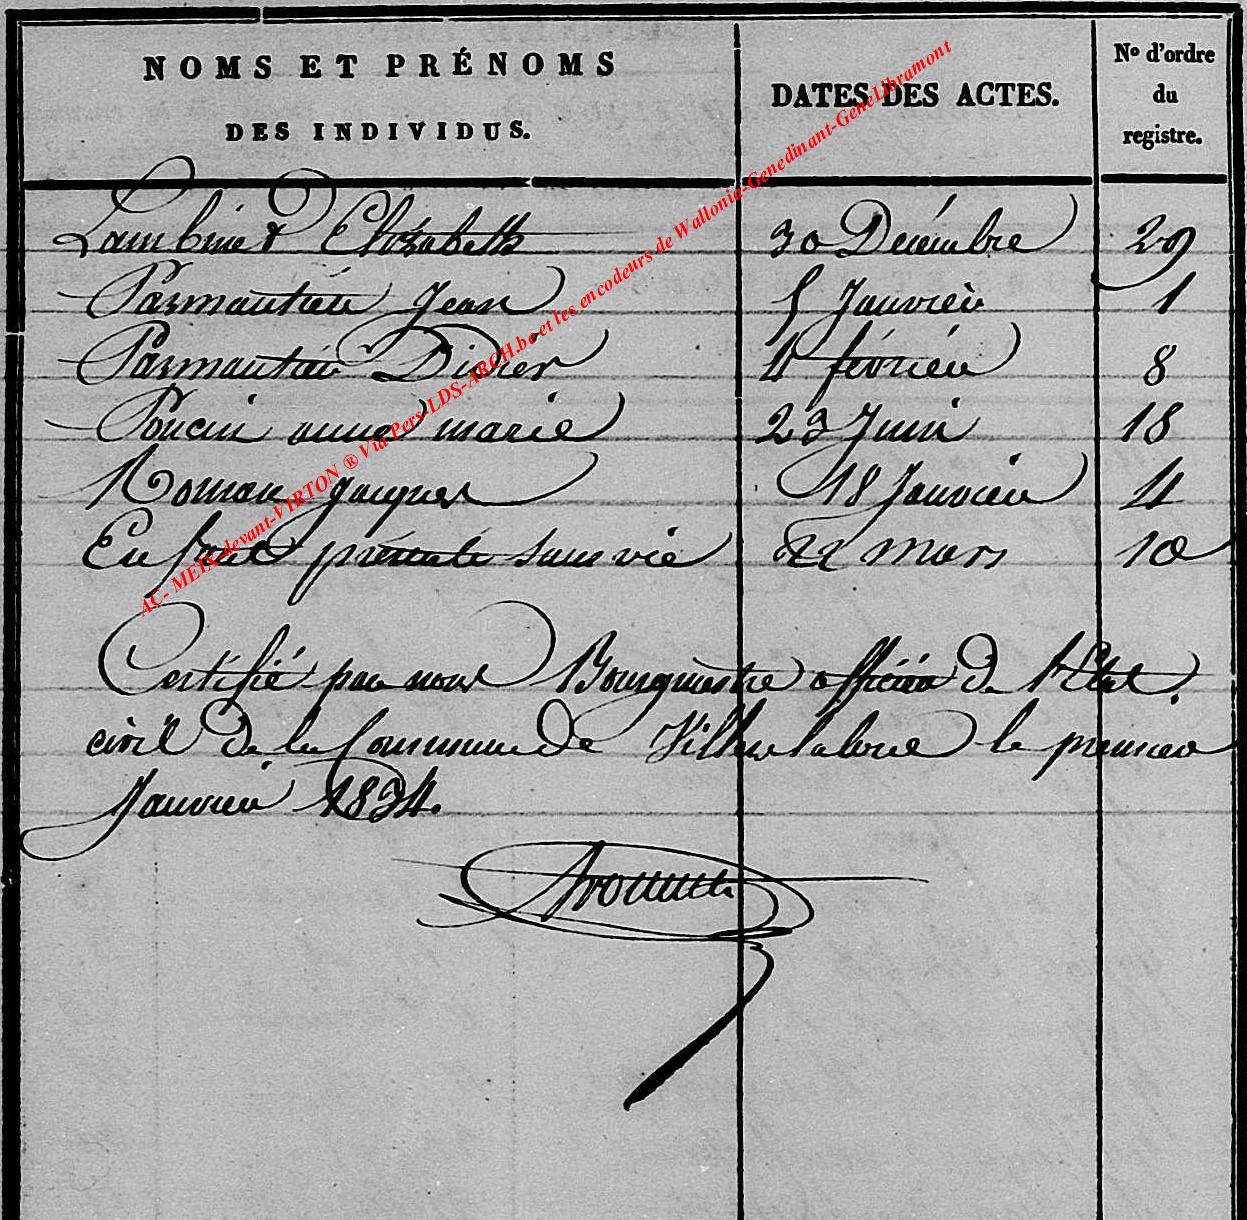 NOMS ET PRÉNOMS
DES INDIVIDUS.
DATES DES ACTES.
N° d'ordre
du
registre.
Lambinet Elisabeth 30 Décembre 29
Parmantier Jean 5 Janvier 1
Parmantier Didier 4 février 8
Poncin anne marie 23 Juin 18
Roman Jacques 18 Janvier 4
Enfant présenté sans vie 22 mars 10
Certifié par nous Bourgmestre officier De l'Etat
civil De la Commune De Villers la loue le premier
Janvier 1834.
AC- MEIX-devant-VIRTON ® Via Pers-LDS-ARCH.be et les encodeurs de Wallonia-Genedinant-GeneLibramont